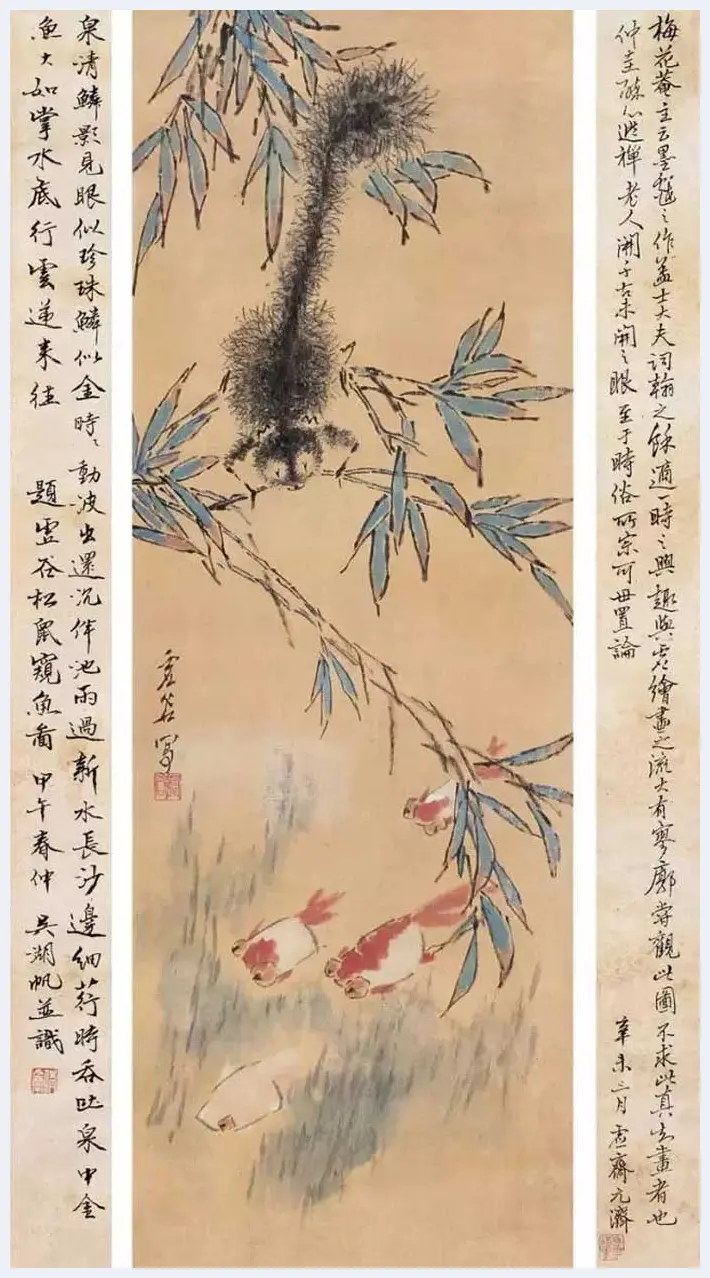 梅花菴主云墨戲之作蓋士大夫詞翰之餘適一時之興趣與繪畫之流大有寥廓嘗觀此圖不求此真去畫者也
仲圭心禪老人開千古未開之眼至于時俗所宗可毋置論
辛未三月 虛齋元濟
虛谷寫
泉清鱗影見眼似珍珠鱗似金時〻動波出還沉伴池雨過新水長沙邊細荇時吞吐泉中金
魚大如掌水底行雲逆來往
題虛谷松鼠窺魚圖 甲午春仲 吳湖帆並識